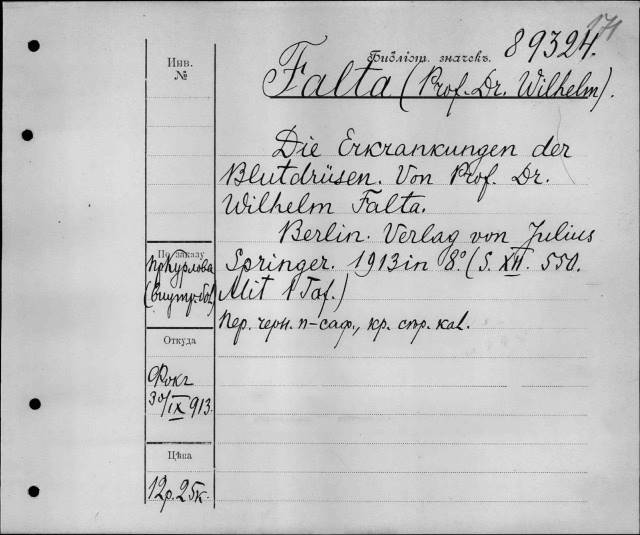 171
Библіот. значекъ. 89324.
Инв.
№
Falta (Prof. Dr. Wilhelm).
Die Erkrankungen der
Blutdrüsen. Von Prof. Dr.
Wilhelm Falta.
Berlin. Verlag von Julius
Springer. 1913 in 8º. (S. XII. 550.
Mit 1 Taf.)
Пер. черн. п-саф., кр. стр. кал.
По заказу
(внутр. бол.)
Откуда
30/IX 913.
Цѣна
12р. 25к.